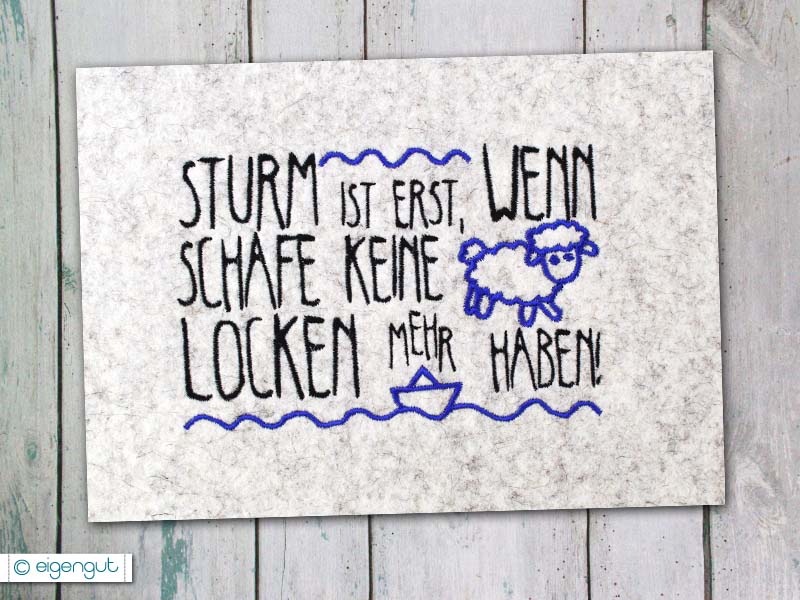 STURM IST ERST, WENN
SCHAFE KEINE
LOCKEN MEHR HABEN!
© eigengut